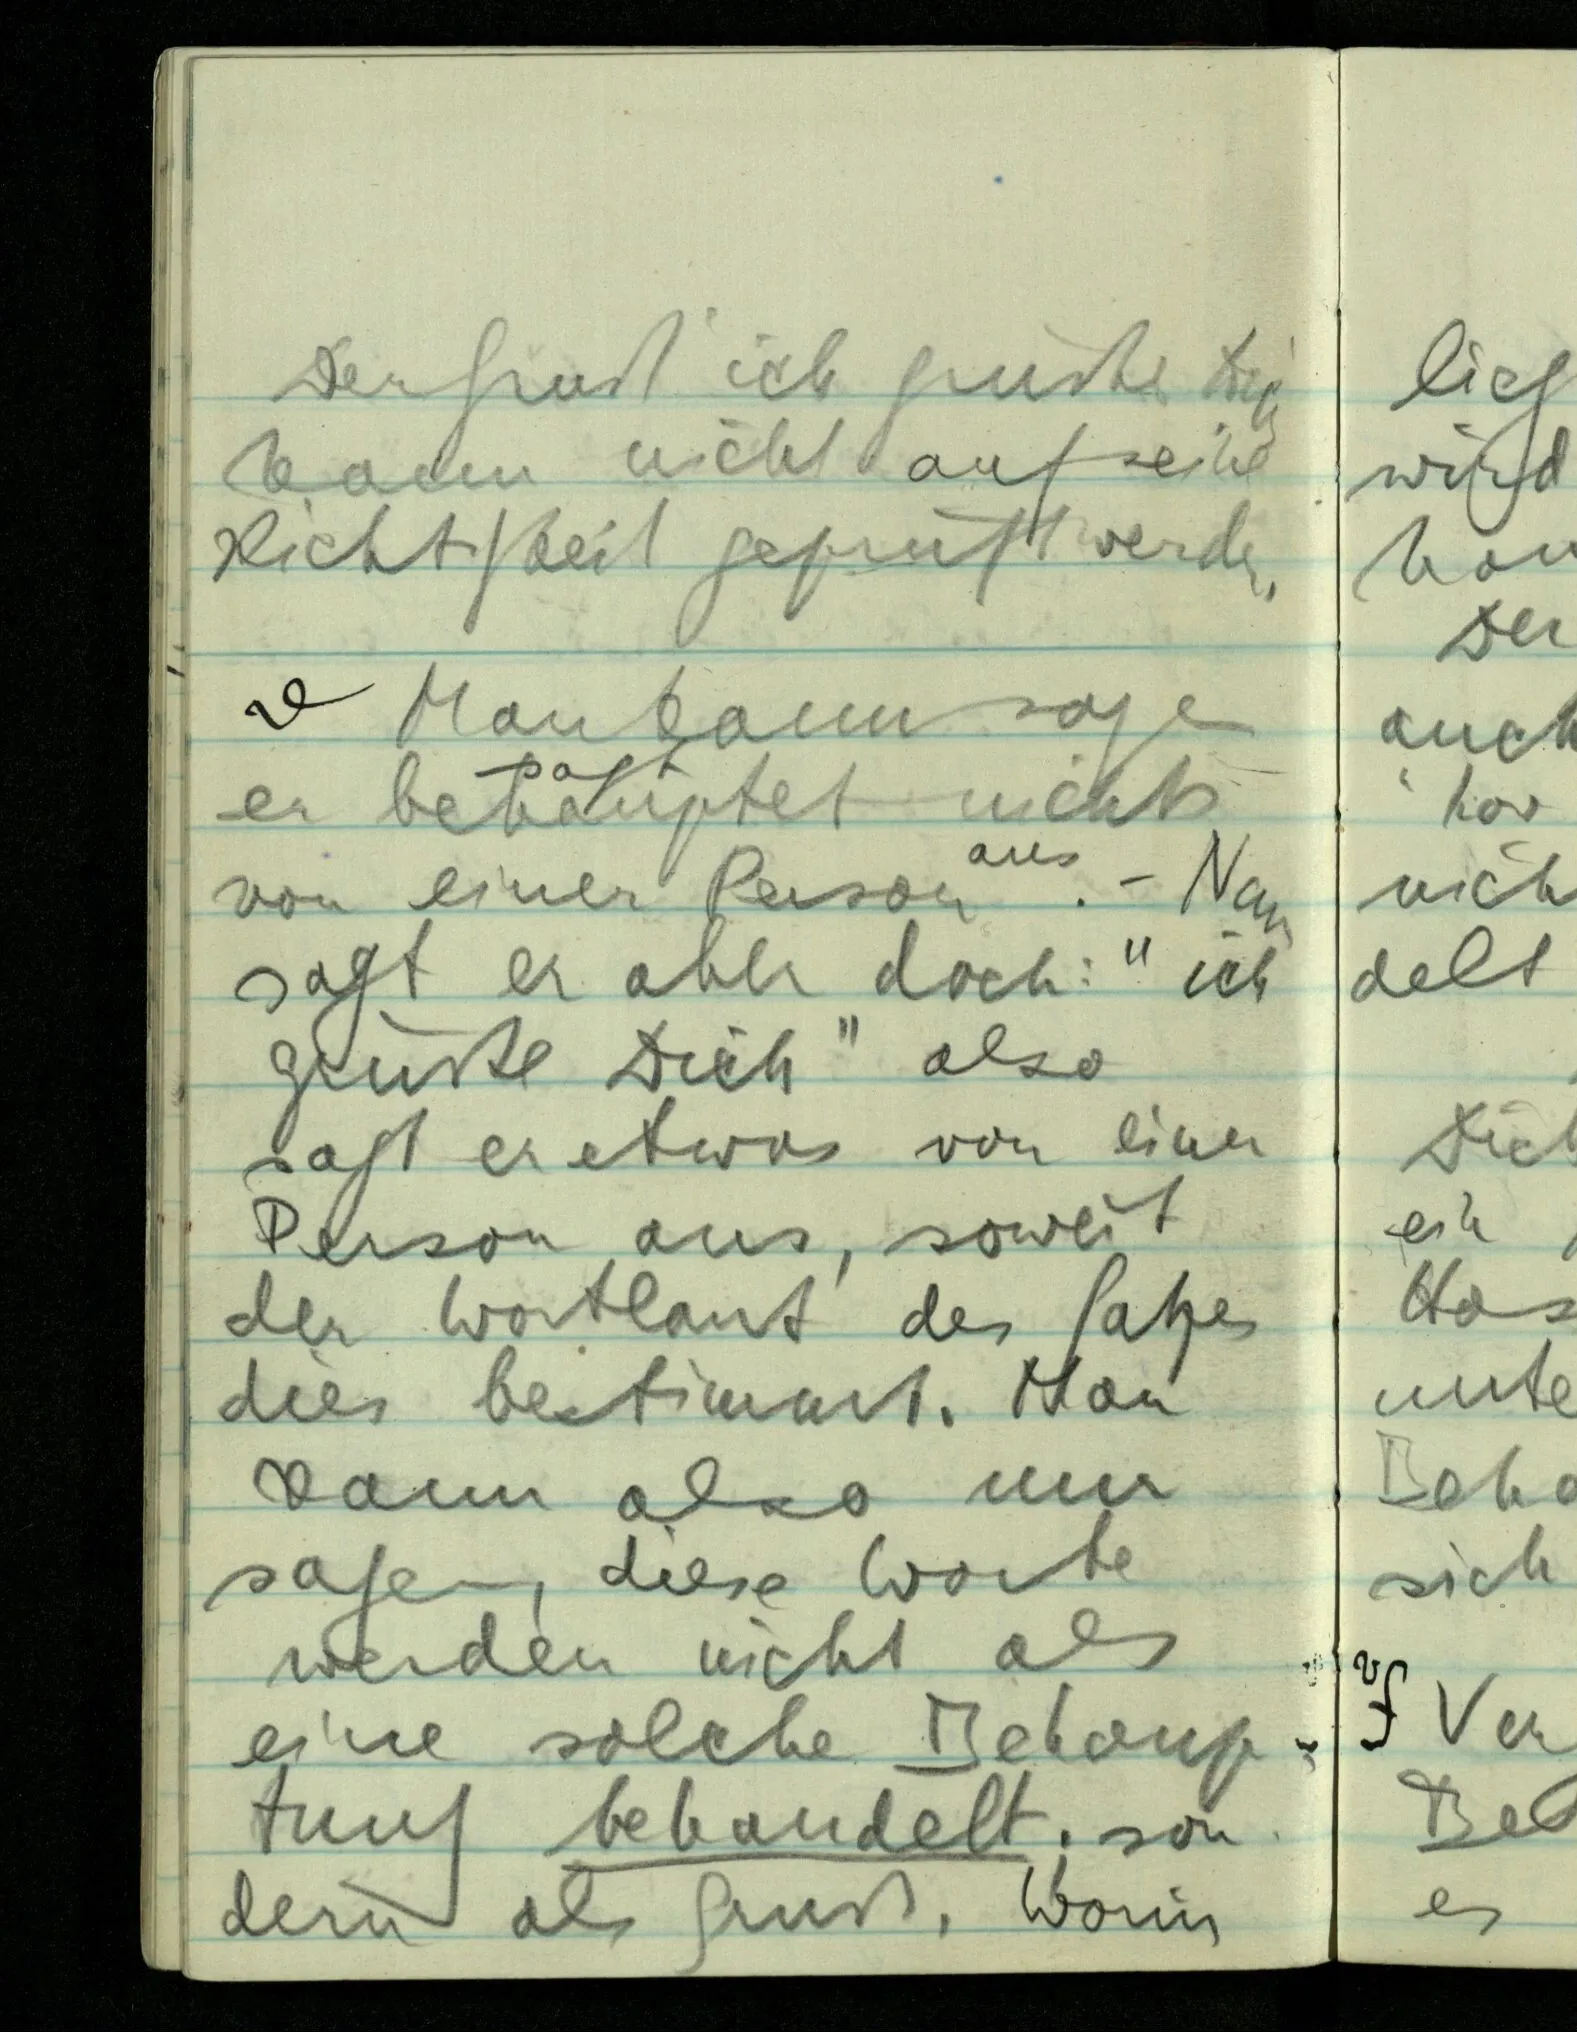 Der Gruß ich grüße Dich
kann nicht auf seine
Richtigkeit geprüft werden.
v Man kann sagen
sagt
er behauptet nichts
aus
von einer Person. – Nun
sagt er aber doch: "ich
grüße Dich" also
sagt er etwas von einer
Person aus, soweit
der Wortlaut des Satzes
dies bestimmt. Man
kann also nur
sagen, diese Worte
werden nicht als
eine solche Behaup-
tung behandelt, son
dern als Gruß. Worin
wird
Der
auch
nich
delt
Dich
ein
unte
sich
Ver
es